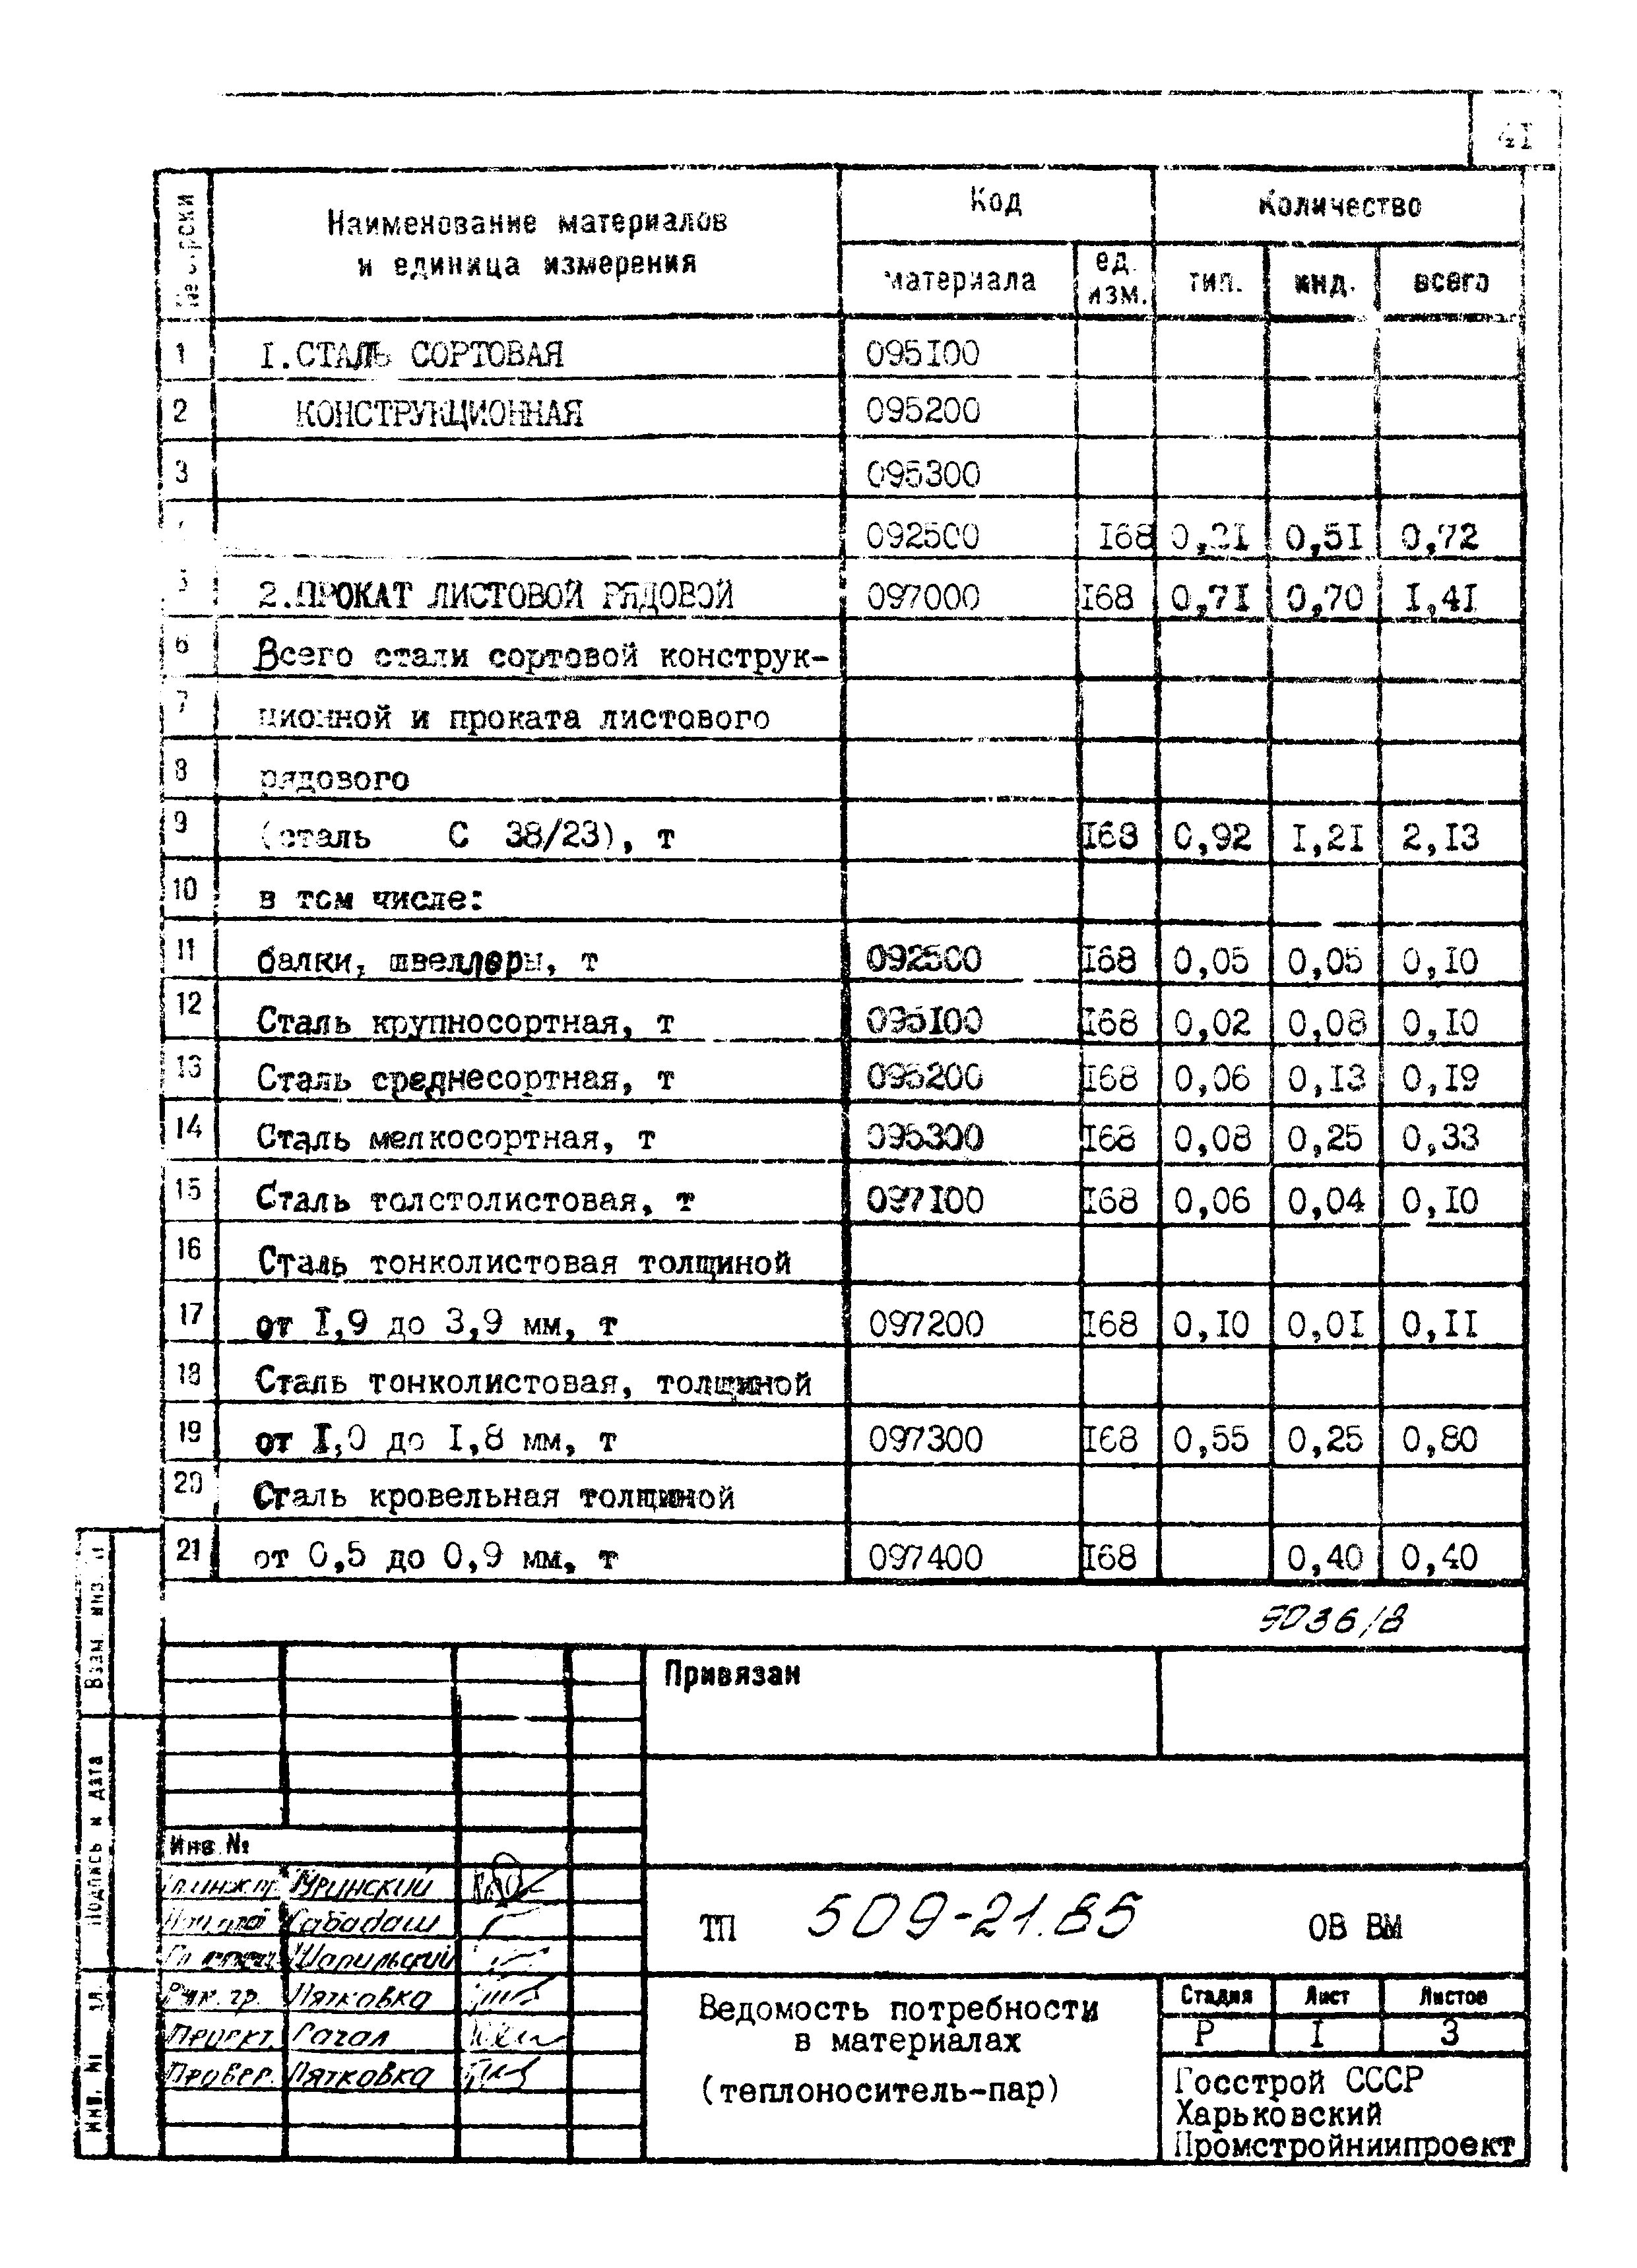 41
№ строки | Наименование материалов и единица измерения | Код | Количество
материала | ед. изм. | тип. | инд. | всего
1 | I.СТАЛЬ СОРТОВАЯ | 095I00
2 | КОНСТРУКЦИОННАЯ | 095200
3 | 095300
092500 | I68 | 0,2I | 0,5I | 0,72
5 | 2.ПРОКАТ ЛИСТОВОЙ РЯДОВОЙ | 097000 | I68 | 0,7I | 0,70 | I,4I
6 | Всего стали сортовой конструк-
7 | ционной и проката листового
8 | рядового
9 | (сталь С 38/23), т | I68 | 0,92 | I,2I | 2,I3
10 | в том числе:
11 | балки, швеллеры, т | 092500 | I68 | 0,05 | 0,05 | 0,I0
12 | Сталь крупносортная, т | 095I00 | I68 | 0,02 | 0,08 | 0,I0
13 | Сталь среднесортная, т | 095200 | I68 | 0,06 | 0,I3 | 0,I9
14 | Сталь мелкосортная, т | 095300 | I68 | 0,08 | 0,25 | 0,33
15 | Сталь толстолистовая, т | 097I00 | I68 | 0,06 | 0,04 | 0,I0
16 | Сталь тонколистовая толщиной
17 | от I,9 до 3,9 мм, т | 097200 | I68 | 0,I0 | 0,0I | 0,II
18 | Сталь тонколистовая, толщиной
19 | от I,0 до I,8 мм, т | 097300 | I68 | 0,55 | 0,25 | 0,80
20 | Сталь кровельная толщиной
21 | от 0,5 до 0,9 мм, т | 097400 | I68 | 0,40 | 0,40
9036/8
Взам. инв. №
Подпись и дата
Инв. №
Привязан
Инв. №
Гл.инж.пр. Уринский
Сабадаш
Шапильский
Рук. гр. Пятковка
Проект. Гагал
Провер. Пятковка
ТП 509-21.85 ОВ ВМ
Ведомость потребности
в материалах
(теплоноситель-пар)
Стадия | Лист | Листов
Р | I | 3
Госстрой СССР
Харьковский
Промстройниипроект